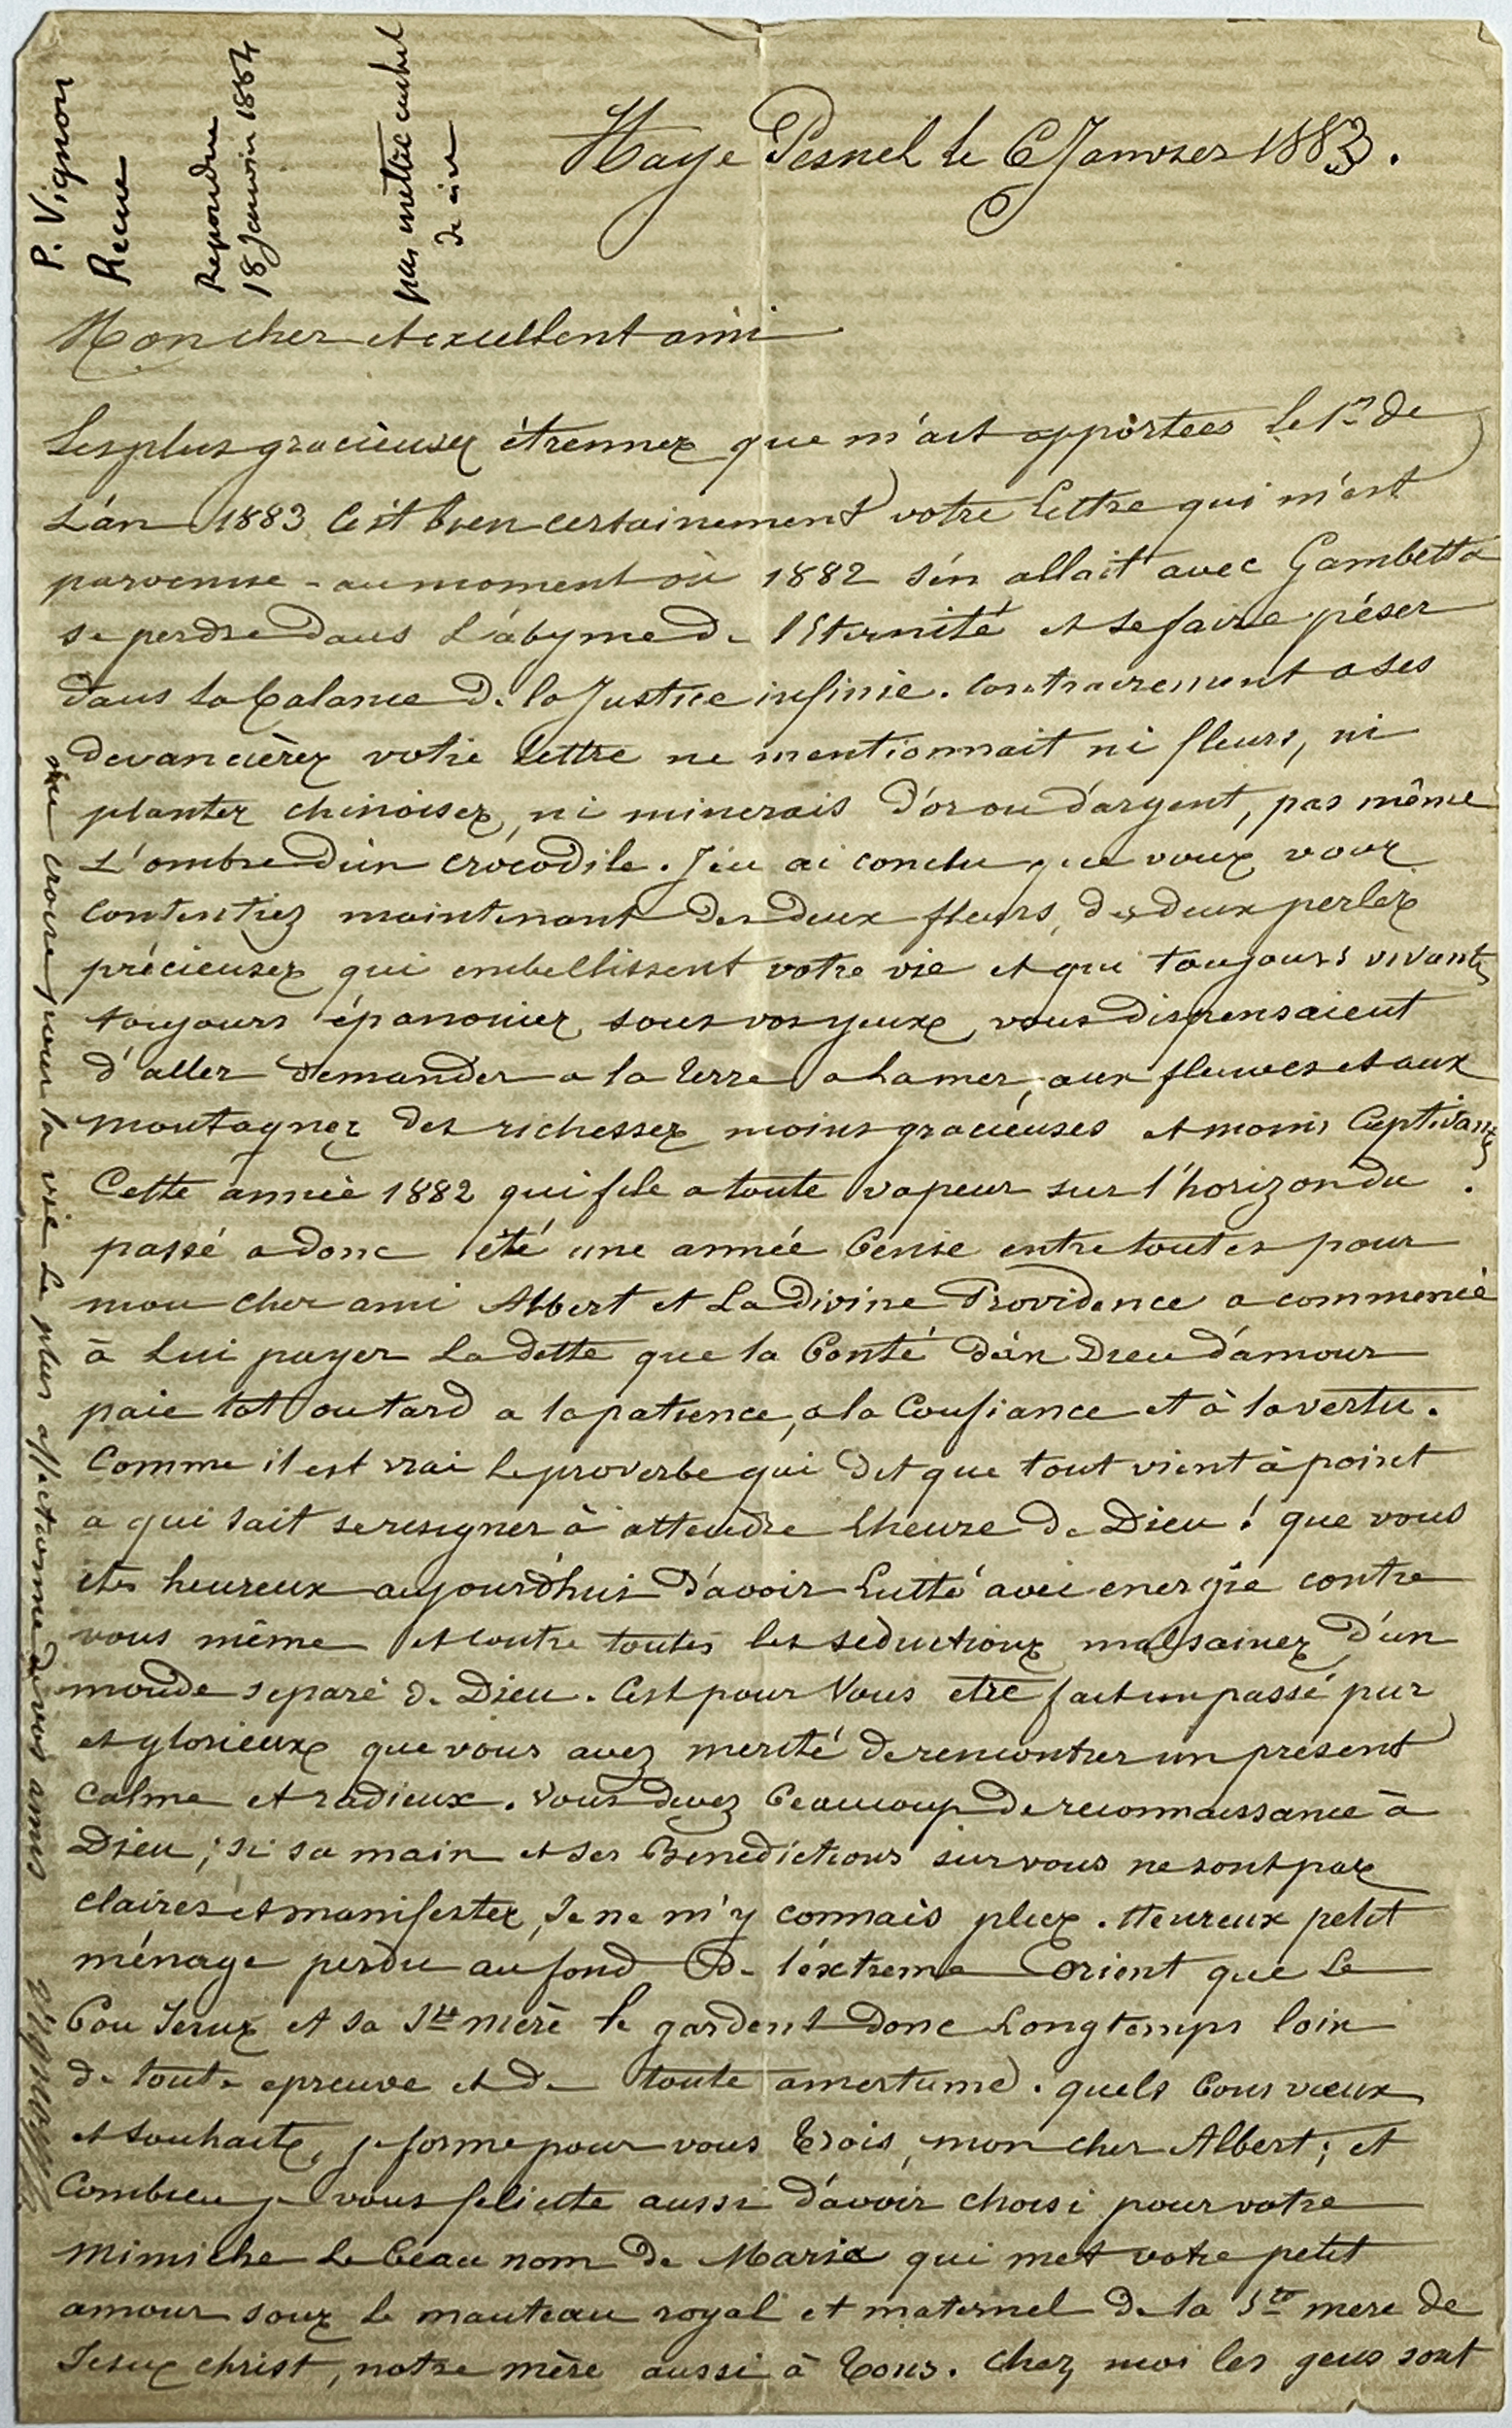 P. Vignon
Recue
Repondue
18 Janvier 1884
pas mettre cachet
de cire
Haye Pesnel le 6 Janvier 1883.
Mon cher et excellent ami
Les plus gracieuses étrennes que m'ait apportées le 1er de
L'an 1883 c'est bien certainement votre lettre qui m'est
parvenue - au moment où 1882 s'en allait avec Gambetta
se perdre dans L'abyme de l'Eternité et se faire péser
dans la balance de la Justice infinie. Contrairement a ses
devancières votre lettre ne mentionnait ni fleurs, ni
plantes chinoises, ni minerais d'or ou d'argent, pas même
L'ombre d'un crocodile. J'en ai conclu que vous vous
contentiez maintenant des deux fleurs, des deux perles
précieuses qui embellissent votre vie et qui toujours vivantes
toujours épanouies sous vos yeux, vous dispensaient
d'aller demander a la terre a la mer, aux fleuves et aux
montagnes des richesses moins gracieuses et moins captivantes.
Cette année 1882 qui file a toute vapeur sur l'horizon du
passé a donc été une année benie entre toutes pour
mon cher ami Albert et La divine Providence a commencé
à Lui payer La dette que la bonté d'un Dieu d'amour
paie tot ou tard a la patience, a la confiance et à la vertu.
Comme il est vrai le proverbe qui dit que tout vient à point
a qui sait se resigner à attendre l'heure de Dieu! que vous
etes heureux aujourd'hui d'avoir Lutté avec energie contre
vous même et contre toutes les séductions malsaines d'un
monde separé de Dieu. C'est pour Vous etre fait un passé pur
et glorieux que vous avez merité de rencontrer un present
calme et radieux. Vous devez beaucoup de reconnaissance à
Dieu; si sa main et ses Benedictions sur vous ne sont pas
claires et manifestes, Je ne m'y connais plus. Heureux petit
ménage perdu au fond de l'éxtreme Orient que Le
bon Jesus et sa Ste mère le gardent donc Longtemps loin
de toute epreuve et de toute amertume. quels bons vœux
et souhaits, je forme pour vous trois, mon cher Albert; et
Combien je vous felicite aussi d'avoir choisi pour votre
mimiche Le beau nom de Maria qui met votre petit
amour sous le manteau royal et maternel de la Ste mere de
Jesus christ, notre mère aussi à tous. Chez moi les gens sont
me croire pour la vie Le plus affectionné de vos amis
Vignon